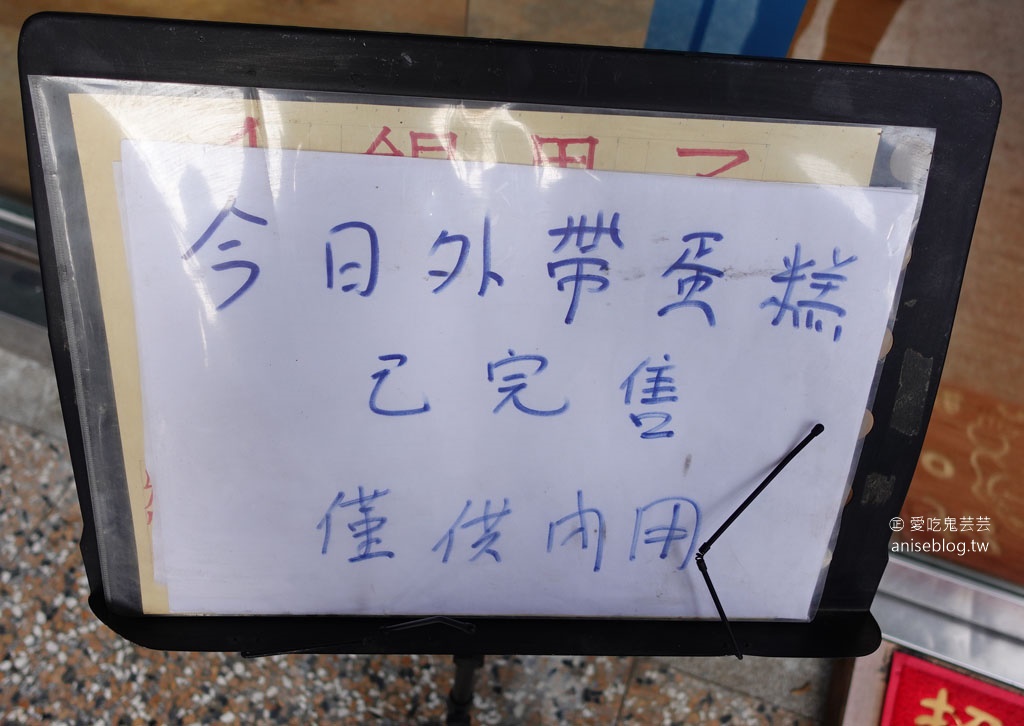 今日外帶蛋糕
已完售
僅供內用
㊣愛吃鬼芸芸
aniseblog.tw